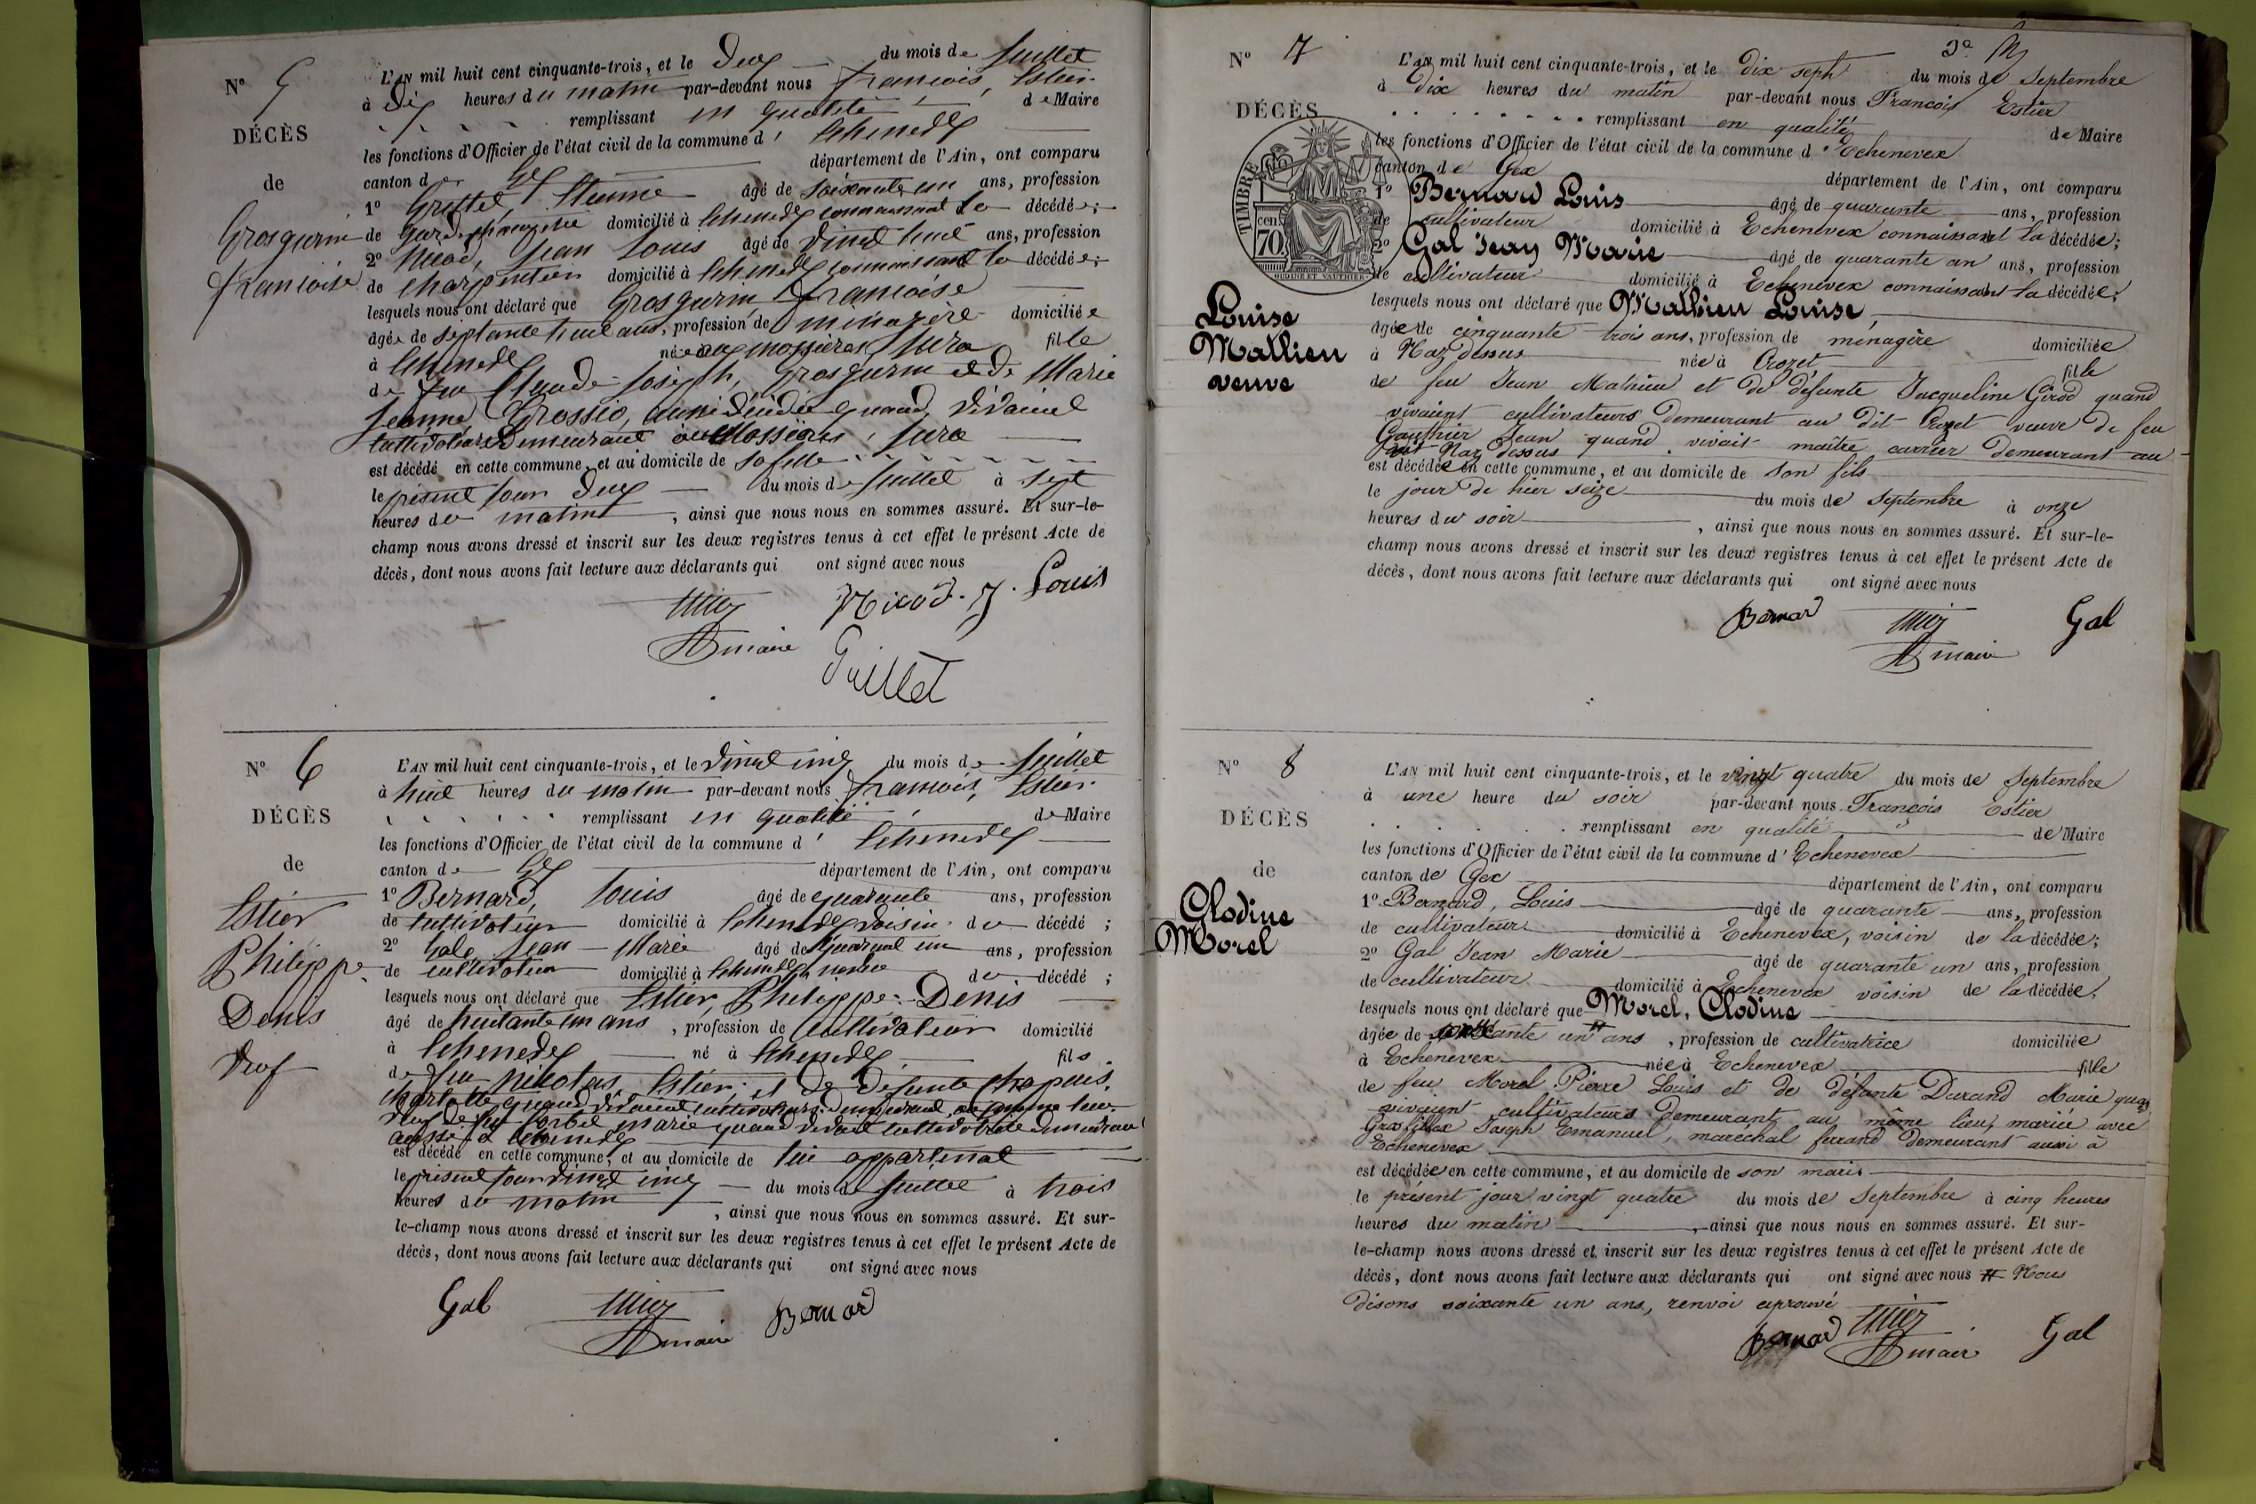 N° 5
DÉCÈS
de
Grosgurin
françoise
L'AN mil huit cent cinquante-trois, et le Deux du mois de Juillet
à Dix heures du matin par-devant nous françois, Estier
remplissant en qualité de Maire
les fonctions d'Officier de l'état civil de la commune d' Echenevex
canton de Gex département de l'Ain, ont comparu
1° Etienne âgé de soixante un ans, profession
de Garde champetre domicilié à Echenevex connaissant la décédée;
2° Nicod, Jean Louis âgé de vingt huit ans, profession
de charpentier domicilié à Echenevex connaissant la décédée;
lesquels nous ont déclaré que Grosgurin, françoise
âgée de septante huit ans, profession de ménagère domiciliée
à Echenevex née aux mossières Jura fille
de feu Claude Joseph, Grosgurin et de Marie
Jeanne, Grossio, aussi décédée quand vivaient
cultivateurs Demeurant aux Mossières, Jura
est décédé en cette commune, et au domicile de sa fille
le présent jour deux du mois de Juillet à sept
heures du matin, ainsi que nous nous en sommes assuré. Et sur-le-
champ nous avons dressé et inscrit sur les deux registres tenus à cet effet le présent Acte de
décès, dont nous avons fait lecture aux déclarants qui ont signé avec nous
Nicod. J. Louis
maire
N° 6
DÉCÈS
de
Estier
Philippe
Denis
Veuf
L'AN mil huit cent cinquante-trois, et le vingt cinq du mois de Juillet
à huit heures du matin par-devant nous françois, Estier
remplissant en qualité de Maire
les fonctions d'Officier de l'état civil de la commune d' Echenevex
canton de Gex département de l'Ain, ont comparu
1° Bernard, Louis âgé de quarante ans, profession
de cultivateur domicilié à Echenevex voisin du décédé;
2° Gale Jean Marie âgé de quarante un ans, profession
de cultivateur domicilié à Echenevex du décédé;
lesquels nous ont déclaré que Estier, Philippe Denis
âgé de huitante un ans, profession de Cultivateur domicilié
à Echenevex né à Echenevex fils
de feu Nicolas, Estier, et de défunte Chapuis,
charlotte quand vivaient cultivateurs demeurant au même lieu
veuf de feu marie quand vivait cultivatrice demeurant
aussi à Echenevex
est décédé en cette commune, et au domicile de lui appartenant
le présent jour vingt cinq du mois de Juillet à trois
heures du matin, ainsi que nous nous en sommes assuré. Et sur-
le-champ nous avons dressé et inscrit sur les deux registres tenus à cet effet le présent Acte de
décès, dont nous avons fait lecture aux déclarants qui ont signé avec nous
Gal Bernard
maire
N° 7
DÉCÈS
TIMBRE
cen
70
Louise
Mathieu
veuve
L'AN mil huit cent cinquante-trois, et le dix sept du mois de Septembre
à dix heures du matin par-devant nous François Estier
remplissant en qualité de Maire
les fonctions d'Officier de l'état civil de la commune d'Echenevex
canton de Gex département de l'Ain, ont comparu
1° Bernard Louis âgé de quarante ans, profession
de cultivateur domicilié à Echenevex connaissant la décédée;
2° Gal Jean Marie âgé de quarante un ans, profession
de cultivateur domicilié à Echenevex connaissant la décédée;
lesquels nous ont déclaré que Mathieu Louise,
âgée de cinquante trois ans, profession de ménagère domiciliée
à Naz dessus née à Crozet fille
de feu Jean Mathieu et de défunte Jacqueline Girod quand
vivaient cultivateurs demeurant au dit Crozet veuve de feu
Gauthier Jean quand vivait maître carrier demeurant au
dit Naz dessus
est décédée en cette commune, et au domicile de son fils
le jour de hier seize du mois de Septembre à onze
heures du soir, ainsi que nous nous en sommes assuré. Et sur-le-
champ nous avons dressé et inscrit sur les deux registres tenus à cet effet le présent Acte de
décès, dont nous avons fait lecture aux déclarants qui ont signé avec nous
Bernard Gal
maire
N° 8
DÉCÈS
de
Clodine
Morel
L'AN mil huit cent cinquante-trois, et le vingt quatre du mois de Septembre
à une heure du soir par-devant nous François Estier
remplissant en qualité de Maire
les fonctions d'Officier de l'état civil de la commune d'Echenevex
canton de Gex département de l'Ain, ont comparu
1° Bernard, Louis âgé de quarante ans, profession
de cultivateur domicilié à Echenevex, voisin de la décédée;
2° Gal Jean Marie âgé de quarante un ans, profession
de cultivateur domicilié à Echenevex voisin de la décédée;
lesquels nous ont déclaré que Morel, Clodine
âgée de soixante un # ans, profession de cultivatrice domiciliée
à Echenevex née à Echenevex fille
de feu Morel Pierre Louis et de défunte Durand Marie quand
vivaient cultivateurs demeurant au même lieu, mariée avec
Grosfillex Joseph Emanuel, maréchal ferrand demeurant aussi à
Echenevex
est décédée en cette commune, et au domicile de son marie
le présent jour vingt quatre du mois de Septembre à cinq heures
heures du matin, ainsi que nous nous en sommes assuré. Et sur-
le-champ nous avons dressé et inscrit sur les deux registres tenus à cet effet le présent Acte de
décès, dont nous avons fait lecture aux déclarants qui ont signé avec nous # Nous
disons soixante un ans, renvoi aprouvé
Bernard Gal
maire